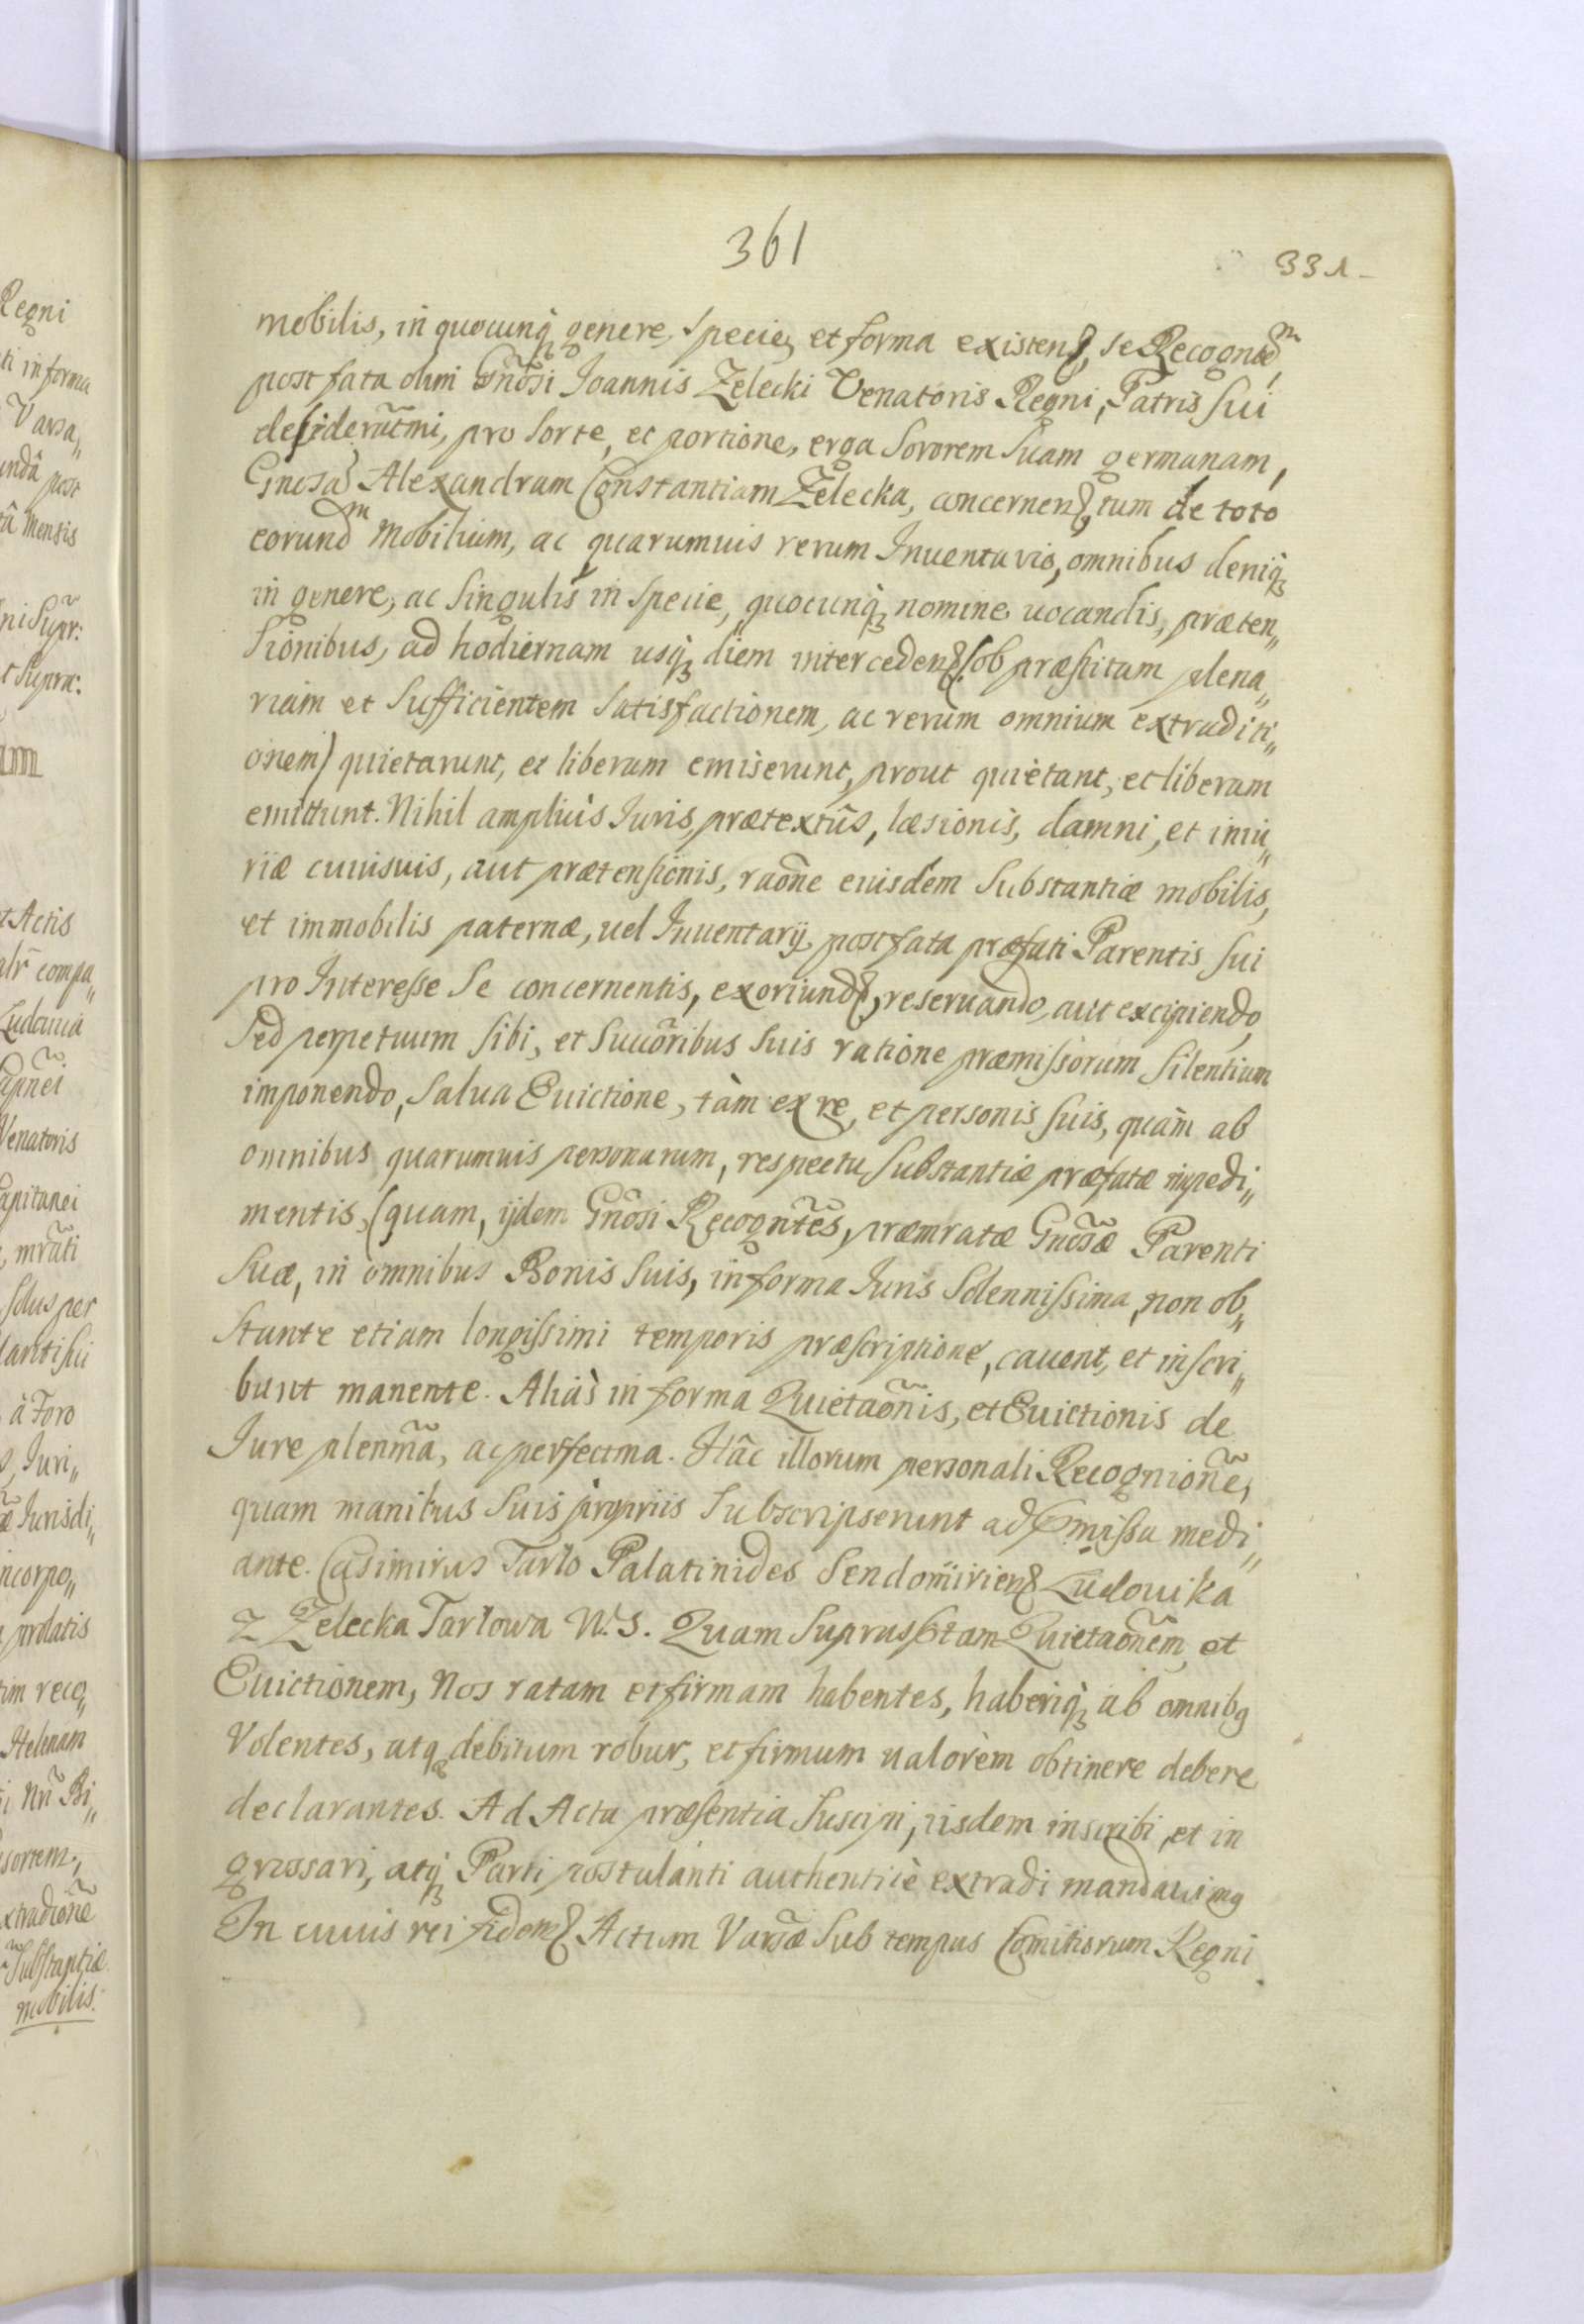 361
331
mobilis, in quocunq̃ genere, specie, et forma existen, se Recognꝺ̃
post fata olim Gnosi Joannis Zelecki Venatoris Regni, Patris sui
desideratmi, pro sorte, et portione, erga Sororem suam germanam,
Gnosa Alexandram Constantiam Zelecka, concernen, tum de toto
eorund Mobilium, ac quarumuis rerum Inuentario, omnibus deniq̃
in genere, ac singulis in specie, quocunq̃ nomine uocandis, præten„
sionibus, ad hodiernam usq̃ diem interceden (ob præstitam plena„
riam et sufficientem satisfactionem, ac rerum omnium extraditi„
onem) quietarunt, et liberam emiserunt, prout quietant, et liberam
emittunt. Nihil ampliùs Iuris, prætextûs, læsionis, damni, et iniu„
riæ cuiusuis, aut prætensionis, raoñe eiusdem Substantiæ mobilis,
et immobilis paternæ, uel Inuentarij, post fata præfati Parentis sui
pro Interesse se concernentis, exoriund, reseruando, aut excipiendo,
Sed perpetuum sibi, et Succoribus suis ratione præmissorum silentium
imponendo, salua Euictione, tàm ex re, et personis suis, quàm ab
omnibus quarumuis personarum, respectu Substantiæ præfatæ impedi„
mentis, (quam, ijdem Gnosi Recogntẽs, præmratæ Gnosæ Parenti
suæ, in omnibus Bonis suis, in forma Iuris solennissima, non ob„
stante etiam longissimi temporis præscriptione, cauent, et inscri„
bunt manente. Aliàs in forma Quietaoñis, et Euictionis de
Iure plenmã, ac perfectma. Hâc illorum personali Recognioñe,
quam manibus suis propriis subscripserunt ad Pmissa medi„
ante. Casimirus Tarlo Palatinides Sendomirien Ludouika
z Zelecka Tarlowa W. S. Quam suprasstam Quietaoñem, et
Euictionem, Nos ratam et firmam habentes, haberiq̃ ab omnibꝰ
Volentes, atq̃ debitum robur, et firmum ualorem obtinere debere
declarantes. Ad Acta præsentia suscipi, iisdem inscribi, et in
grossari, atq̃ Parti postulanti authenticè extradi mandauimꝰ
In cuius rei fidem Actum Varsæ sub tempus Comitiorum Regni